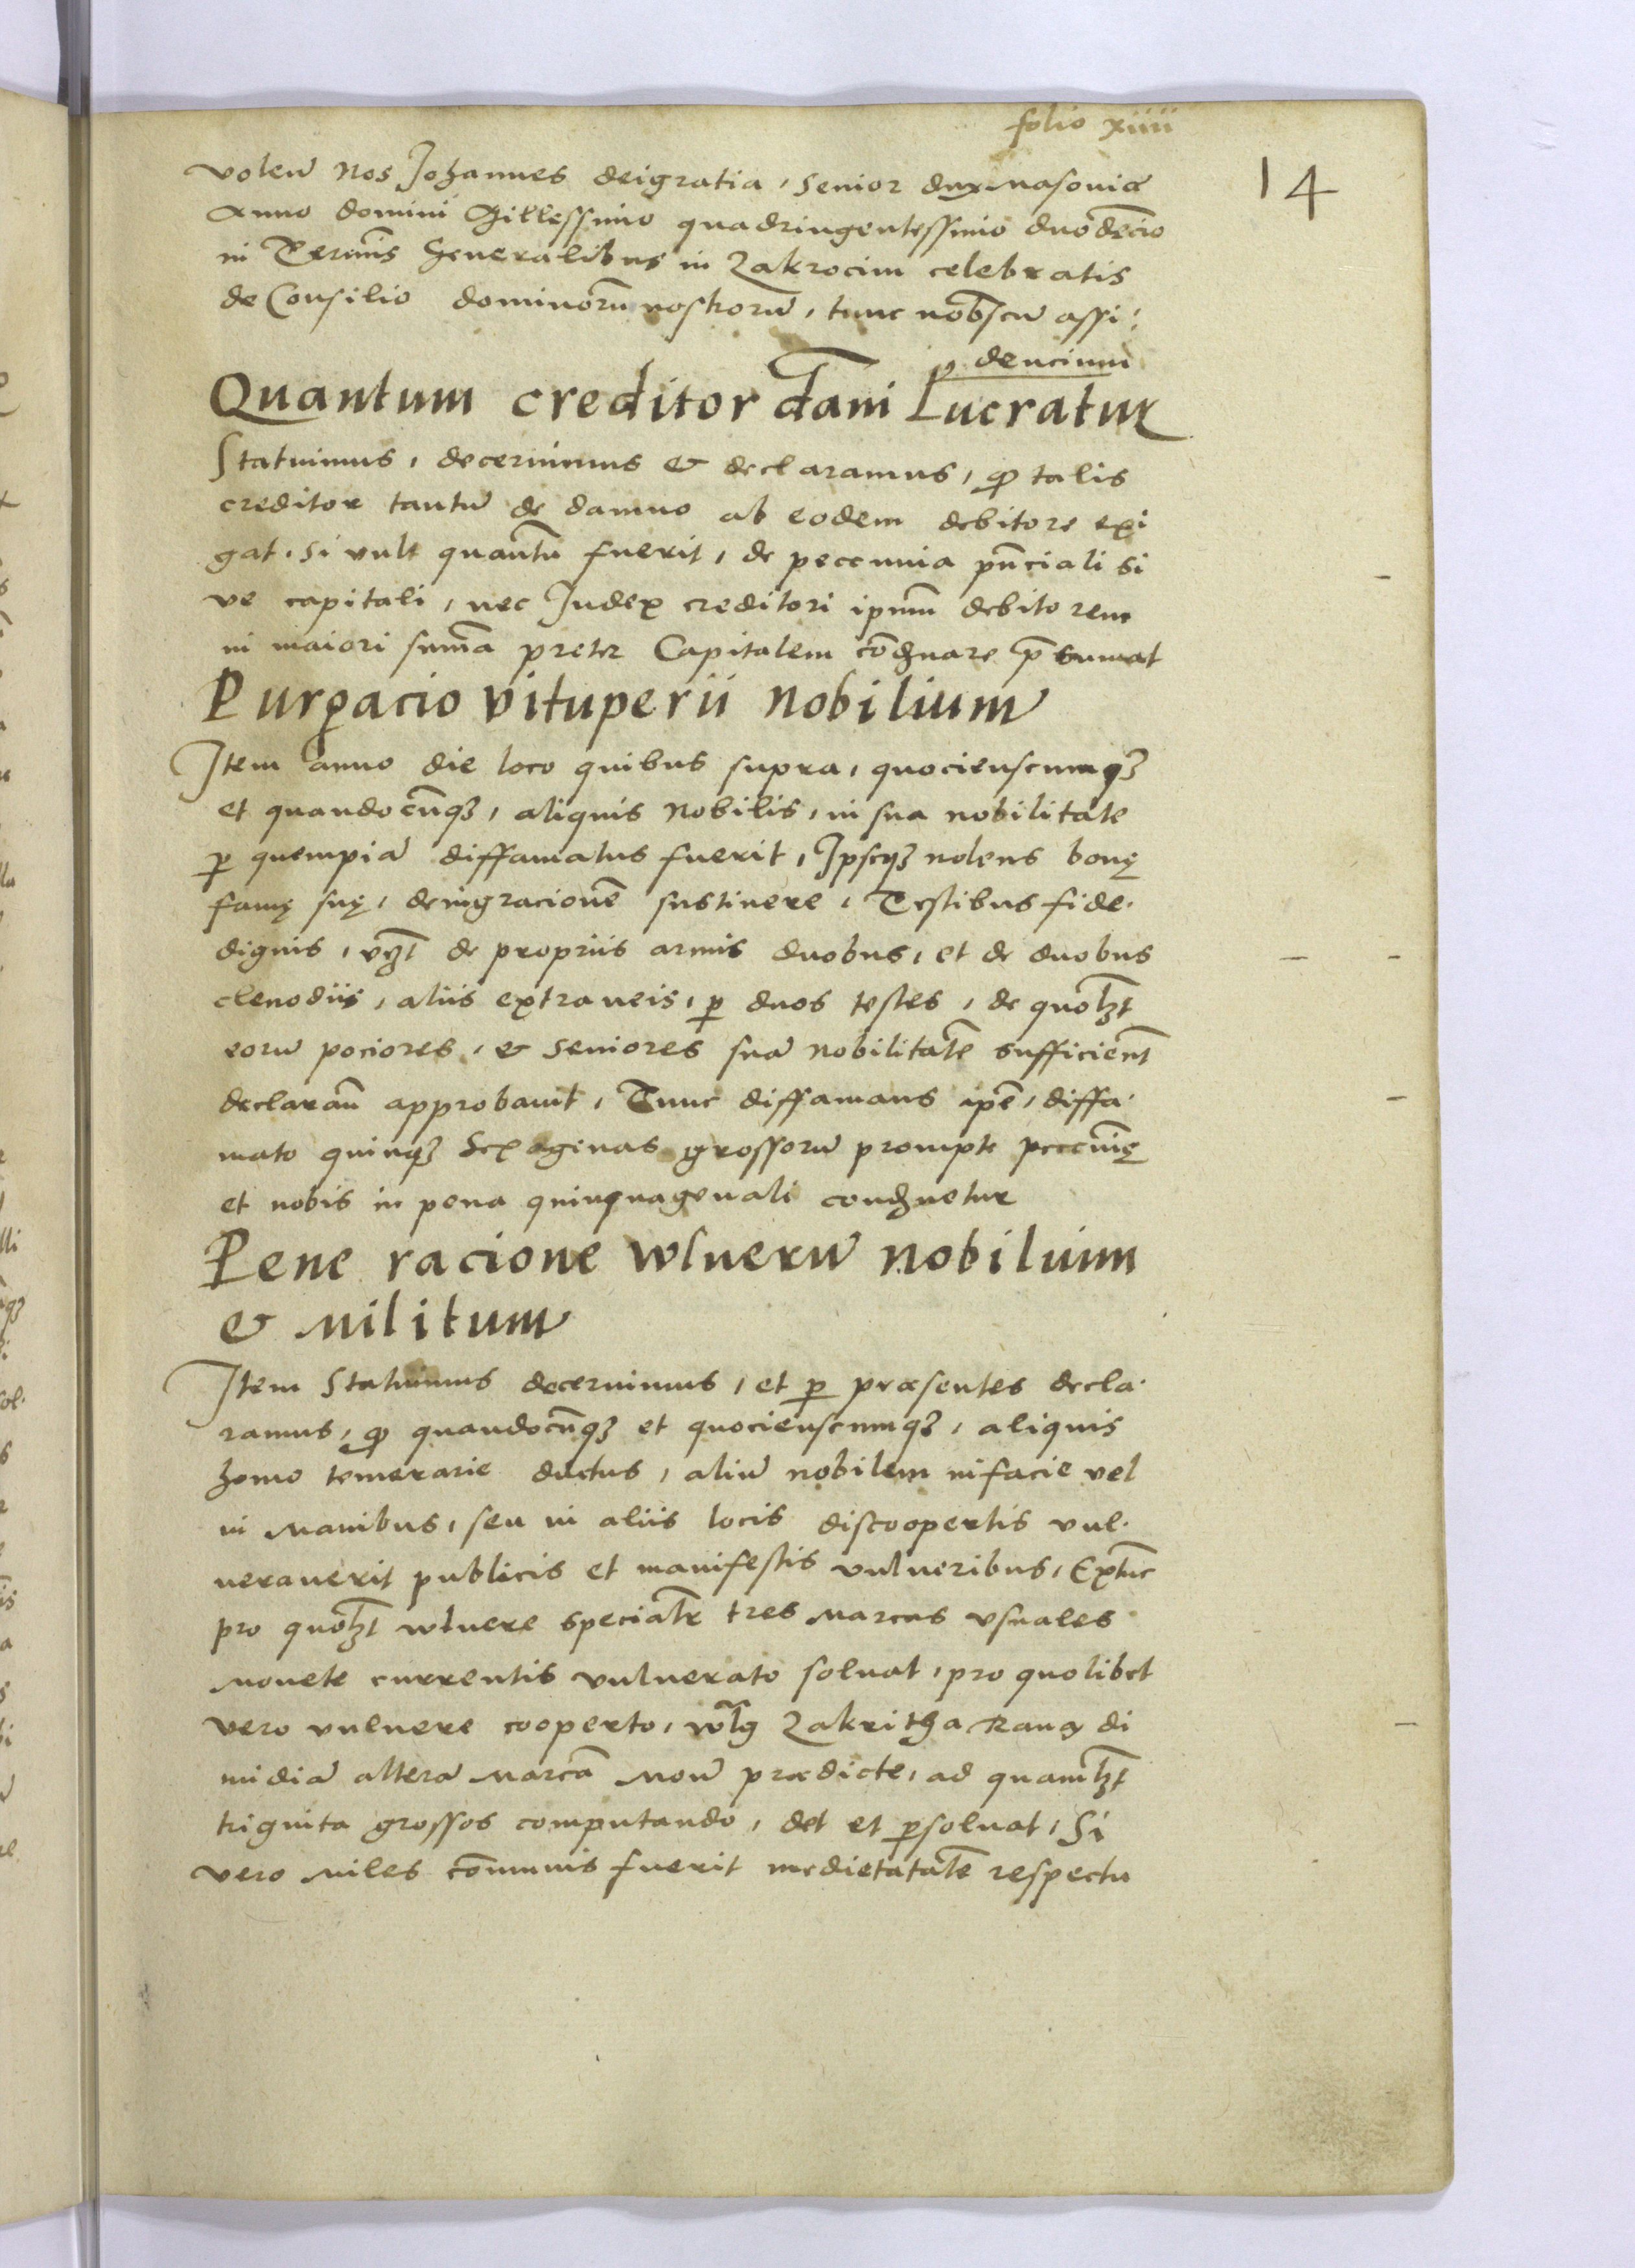 folio xiiii
14
volen̄ Nos Johannes deigratia, Senior dux Masoviæ
Anno domini Millessimo quadringentessimo duodec̄io
in Termīs Generalibus in Zakrocim celebratis
de Consilio dominorū nostrorū, tunc nobscū assi:
dencium
Quantum creditor dāni Lucratur
Statuimus, decernimus & declaramus, ꝙ talis
creditor tantū de damno ab eodem debitore exi
gat. Si vult quantū fuerit, de peccunia pn̄ciali si
ve capitali, nec Judex creditori ipmm̄ debitorem
in maiori sum̄a preter Capitalem cōdnare p̄sumat
Purgacio vituperii Nobilium
Item anno die loco quibus supra, quocienscumqꝫ
et quandocūqꝫ, aliquis Nobilis, in sua nobilitate
ꝑ quempiā diffamatus fuerit, Ipseqꝫ nolens bonę
famę suę, denigracionē sustinere, Testibus fide.
dignis, vꝫt de propriis armis duobus, et de duobus
clenodiis, aliis extraneis, ꝑ duos testes, de quolꝫt
eorū pociores, & Seniores suā nobilitatē sufficient̄
declaran̄ approbavit, Tunc diffamans ipē, diffa.
mato quinqꝫ Sexagenas grossorū prompte peccunię
et nobis in pena quinquagenali condnetur
Pene racione wlnerū Nobilium
& Militum
Item Statuimus decernimus, et ꝑ præsentes decla.
ramus, ꝙ quandocūqꝫ et quocienscumqꝫ, aliquis
homo temerarie ductus, aliū nobilem in facie vel
in Manibus, seu in aliis locis discoopertis vul.
neraverit publicis et manifestis vulneribus, Extūc
pro quolꝫt wlnere speciālr tres Marcas usuales
Monete currentis vulnerato solvat, pro quolibet
vero vulnere cooperto, wlg Zakritha Rana di
midiā alterā Marcā Mon̄ prædicte, ad quamlꝫt
triginta grossos computando, det et ꝑsolvat, Si
vero Miles cōmunis fuerit medietatatē respectu